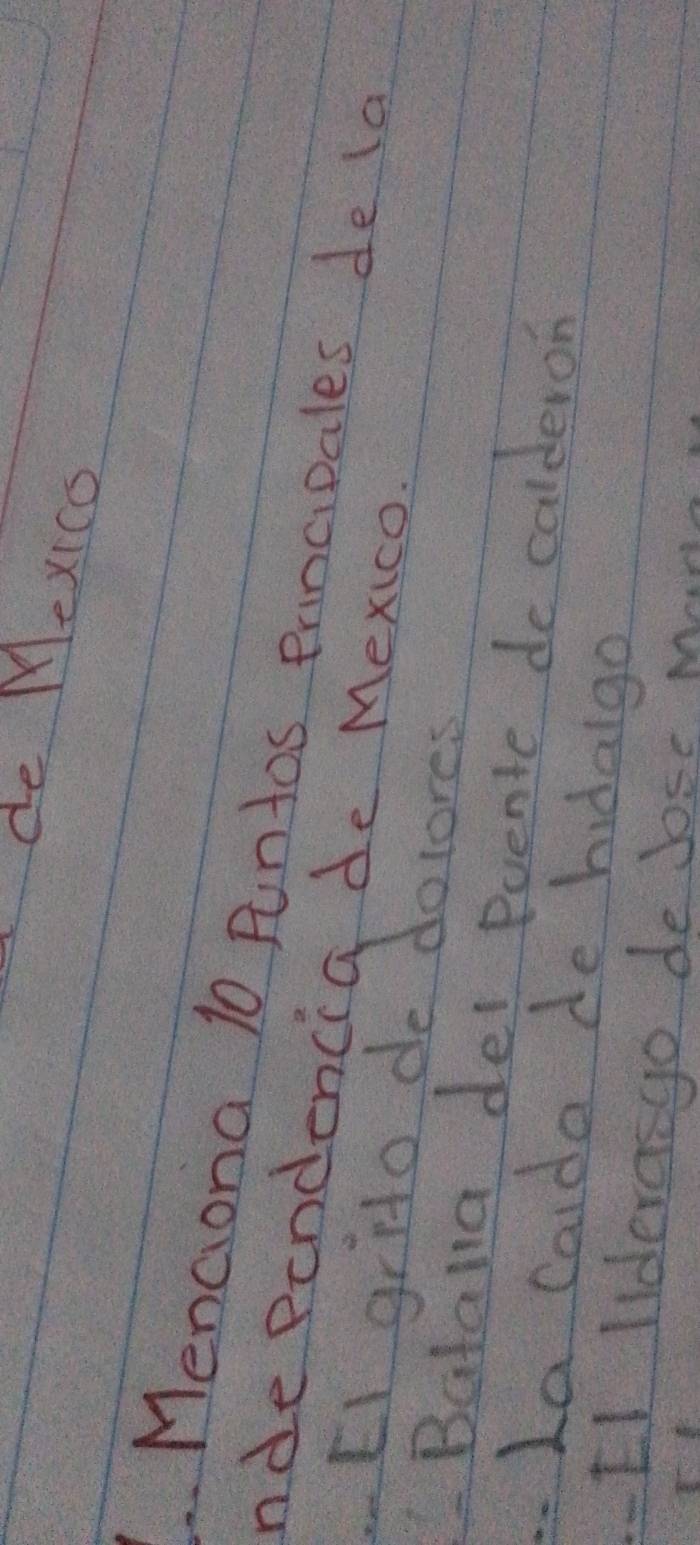 de Mexico
1.- Menciona 10 Puntos Principales de la
ndependencia de Mexico.
.- El grito de dolores
.- Batalla del Puente de calderón
.- La Caida de hidalgo
.- El liderasgo de Jose